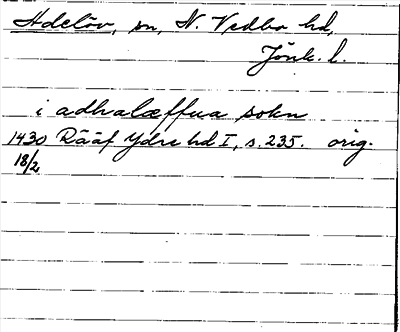 Adelöv, sn, N. Vedbo hd,
Jönk. l.
i adhalæffua sokn
1430 Rääf Ydre hd I, s. 235. orig.
18/2